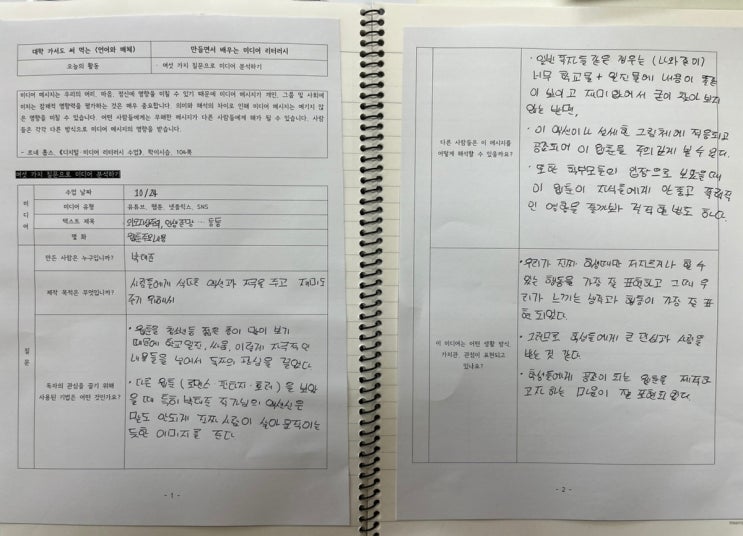 대학 가서도 써 먹는 (언어와 매체)
만들면서 배우는 미디어 리터러시
오늘의 활동
· 여섯 가지 질문으로 미디어 분석하기
미디어 메시지는 우리의 머리, 마음, 정신에 영향을 미칠 수 있기 때문에 미디어 메시지가 개인, 그룹 및 사회에
미치는 잠재적 영향력을 평가하는 것은 매우 중요합니다. 의미와 해석의 차이로 인해 미디어 메시지는 예기치 않
은 영향을 미칠 수 있습니다. 어떤 사람들에게는 무해한 메시지가 다른 사람들에게 해가 될 수 있습니다. 사람
들은 각각 다른 방식으로 미디어 메시지의 영향을 받습니다.
- 르네 홉스, 《디지털·미디어 리터러시 수업》, 학이시습, 104쪽
여섯 가지 질문으로 미디어 분석하기
미디어
수업 날짜
10/24
미디어 유형
유튜브, 웹툰, 넷플릭스, SNS
텍스트 제목
외모지상주의, 인생존망 … 등등
웹툰 주의 내용
질문
만든 사람은 누구입니까?
박태준
제작 목적은 무엇입니까?
사람들에게 색다른 액션과 자극을 주고 재미도
주기 위해서
독자의 관심을 끌기 위해
사용된 기법은 어떤 것인가요?
· 웹툰을 청소년등 젊은 층이 많이 보기
때문에 학교 일진, 싸움, 이렇게 자극적인
내용들을 넣어서 독자의 관심을 끌었다.
· 다른 웹툰 (로맨스 판타지·호러)을 보았
을 때 특히 박태준 작가님의 액션신은
말도 안되게 진짜 사람이 살아 움직이는
듯한 이미지를 준다.
- 1 -
다른 사람들은 이 메시지를
어떻게 해석할 수 있을까요?
· 일반 독자들 같은 경우는 (나와 같이)
너무 학교물 + 일진물에 내용이 똑같
이 보이고 재미없어서 굳이 찾아보지
않는 반면,
· 이 액션이나 섬세한 그림체에 적응되고
공존되어 이 웹툰을 주의 깊게 볼 수 있다.
· 또한 학부모들의 입장으로 보았을 때
이 웹툰이 자식들에게 안좋고 폭력적
인 영향을 줄거라 걱정할 법도 하다.
이 미디어는 어떤 생활 방식,
가치관, 관점이 표현되고
있나요?
· 우리가 진짜 학생때만 저지르거나 할 수
있는 행동을 가장 잘 표현하고 그때 우
리가 느끼는 생각과 행동이 가장 잘 표
현 되었다.
· 그러므로 학생들에게 큰 관심과 사랑을
받는 것 같다.
· 학생들에게 공존이 되는 웹툰을 제작하
고자 하는 마음이 잘 표현되 있다.
- 2 -